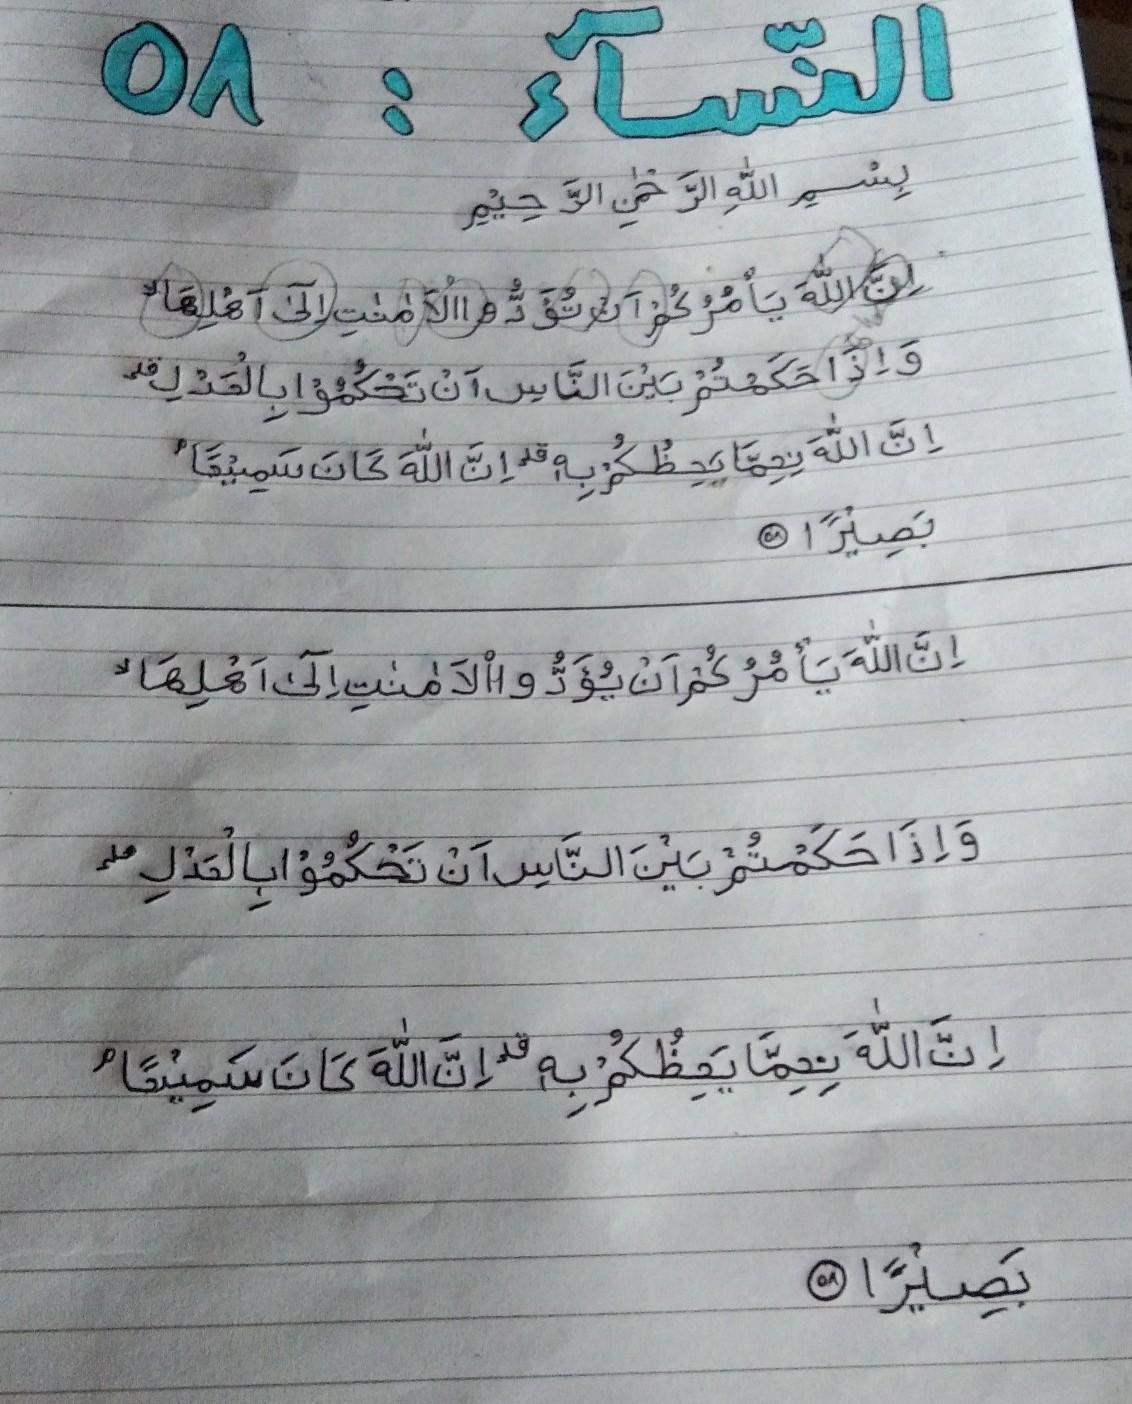 النّسآء : ٥٨
بِسْمِ اللّٰهِ الرَّحْمٰنِ الرَّحِيْمِ
اِنَّ اللّٰهَ يَأْمُرُكُمْ اَنْ تُؤَدُّوا الْاَمٰنٰتِ اِلٰٓى اَهْلِهَاۙ
وَاِذَا حَكَمْتُمْ بَيْنَ النَّاسِ اَنْ تَحْكُمُوْا بِالْعَدْلِۗ
اِنَّ اللّٰهَ نِعِمَّا يَعِظُكُمْ بِهٖۗ اِنَّ اللّٰهَ كَانَ سَمِيْعًاۢ
بَصِيْرًا ٥٨
اِنَّ اللّٰهَ يَأْمُرُكُمْ اَنْ يُؤَدُّوا الْاَمٰنٰتِ اِلٰٓى اَهْلِهَاۙ
وَاِذَا حَكَمْتُمْ بَيْنَ النَّاسِ اَنْ تَحْكُمُوْا بِالْعَدْلِۗ
اِنَّ اللّٰهَ نِعِمَّا يَعِظُكُمْ بِهٖۗ اِنَّ اللّٰهَ كَانَ سَمِيْعًاۢ
بَصِيْرًا ٥٨